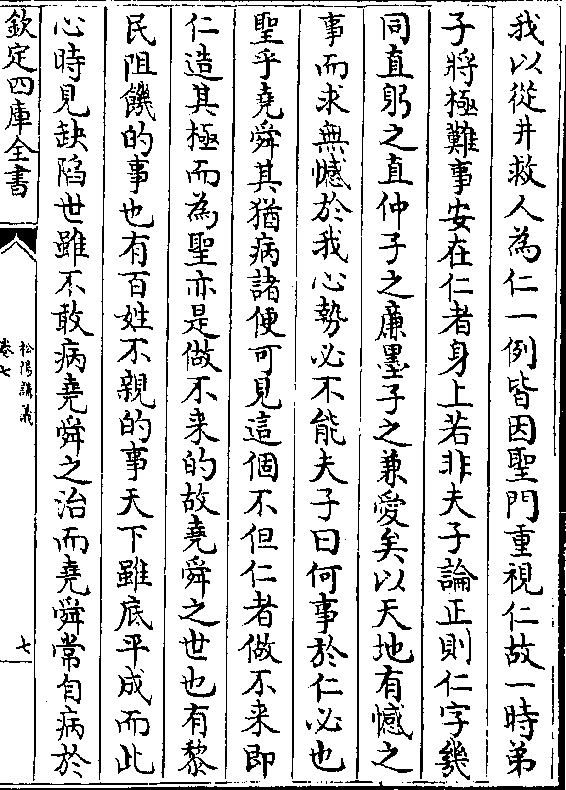 我以從井救人為仁一例皆因聖門重視仁故一時弟
子將極難事安在仁者身上若非夫子論正則仁字幾
同直躬之直仲子之亷墨子之兼愛矣以天地有憾之
事而求無憾於我心勢必不能夫子曰何事於仁必也
聖乎堯舜其猶病諸便可見這個不但仁者做不来即
仁造其極而為聖亦是做不来的故堯舜之世也有黎
民阻饑的事也有百姓不親的事天下雖底平成而此
心時見缺陷世雖不敢病堯舜之治而堯舜常自病於
欽定四庫全書
松陽講義
卷七
七